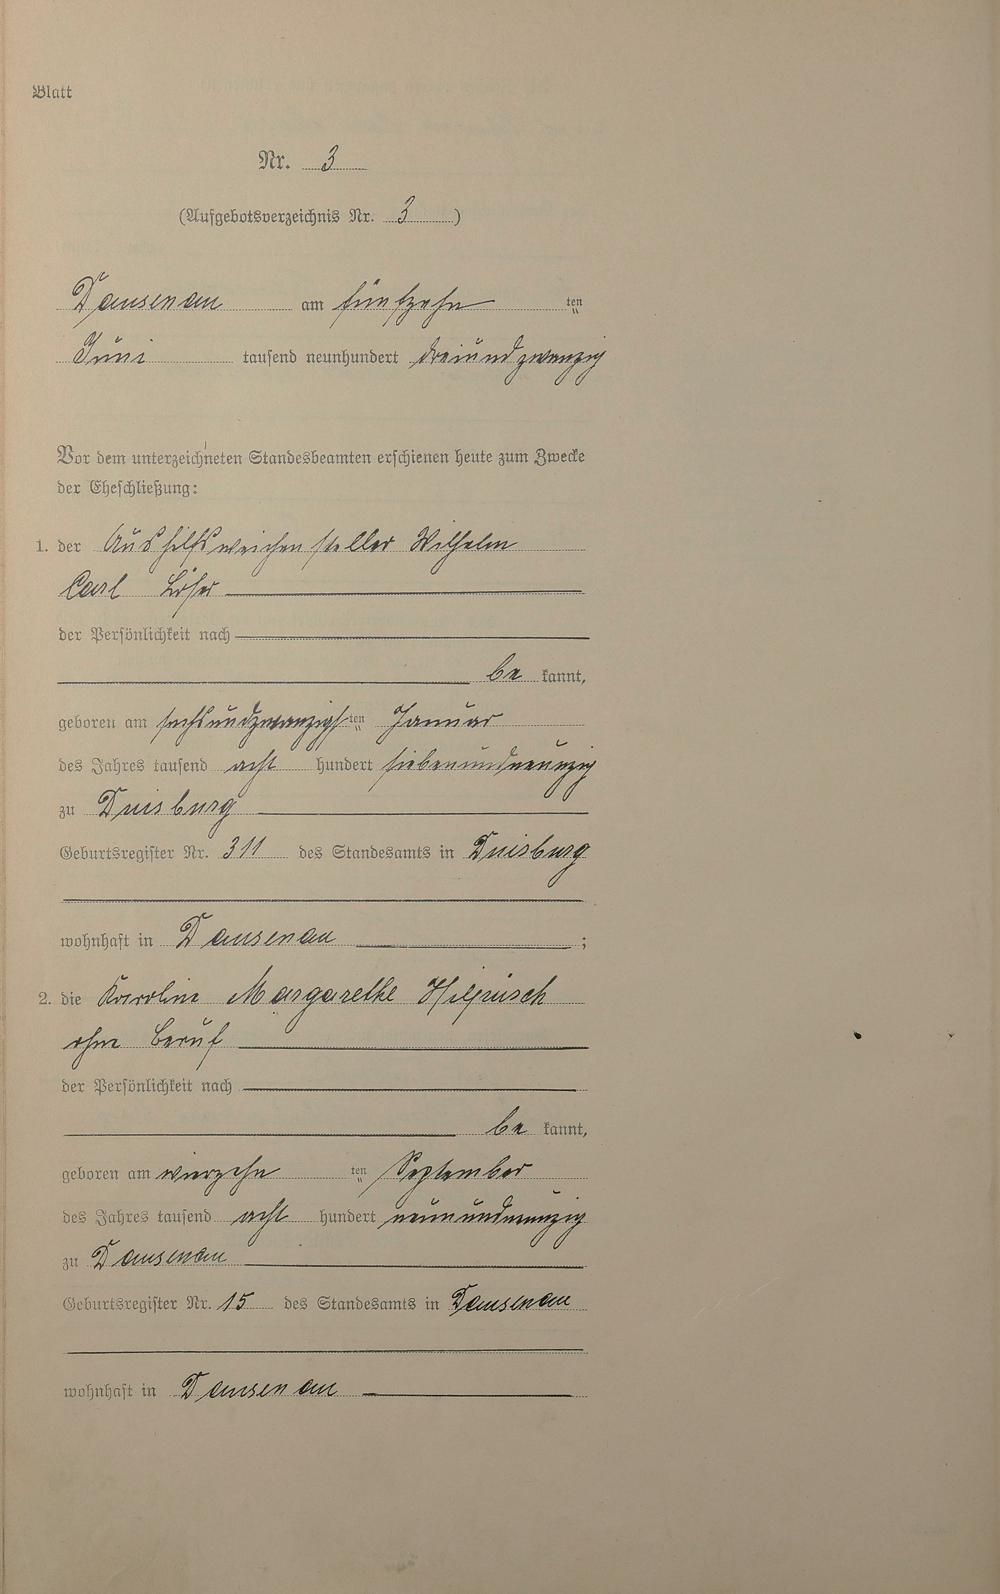 Blatt
Nr. 3
(Aufgebotsverzeichnis Nr. 3)
Dausenau am fünfzehn ten
Juni tausend neunhundert dreiundzwanzig
Vor dem unterzeichneten Standesbeamten erschienen heute zum Zwecke
der Eheschließung:
1. der Aushilfsweichensteller Wilhelm
Carl Löser
der Persönlichkeit nach
be kannt,
geboren am sechsundzwanzigsten Januar
des Jahres tausend acht hundert siebenundneunzig
zu Duisburg
Geburtsregister Nr. 311 des Standesamts in Duisburg
wohnhaft in Dausenau ;
2. die Karoline Margarethe Hilpüsch
ohne Beruf
der Persönlichkeit nach
be kannt,
geboren am vierzehn ten September
des Jahres tausend acht hundert neunundneunzig
zu Dausenau
Geburtsregister Nr. 15 des Standesamts in Dausenau
wohnhaft in Dausenau